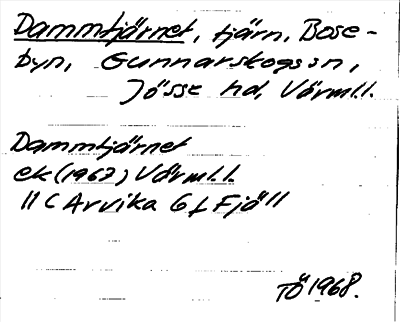 Dammtjärnet, tjärn, Bose-
byn, Gunnarskogs sn,
Jösse hd, Värml.
Dammtjärnet
ek (1967) Värml.
11 C Arvika 6 f Fjöll
TÖ 1968.